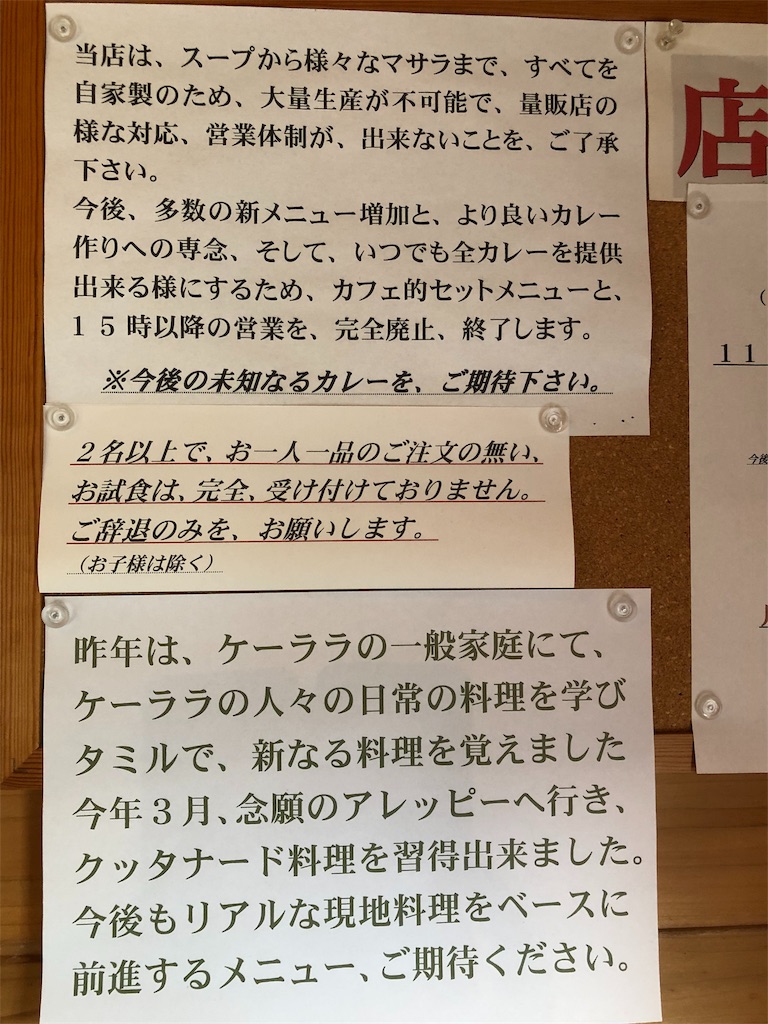 当店は、スープから様々なマサラまで、すべてを
自家製のため、大量生産が不可能で、量販店の
様な対応、営業体制が、出来ないことを、ご了承
下さい。
今後、多数の新メニュー増加と、より良いカレー
作りへの専念、そして、いつでも全カレーを提供
出来る様にするため、カフェ的セットメニューと、
１５時以降の営業を、完全廃止、終了します。
※今後の未知なるカレーを、ご期待下さい。
２名以上で、お一人一品のご注文の無い、
お試食は、完全、受け付けておりません。
ご辞退のみを、お願いします。
（お子様は除く）
昨年は、ケーララの一般家庭にて、
ケーララの人々の日常の料理を学び
タミルで、新なる料理を覚えました
今年３月、念願のアレッピーへ行き、
クッタナード料理を習得出来ました。
今後もリアルな現地料理をベースに
前進するメニュー、ご期待ください。
店
（
１１
今後